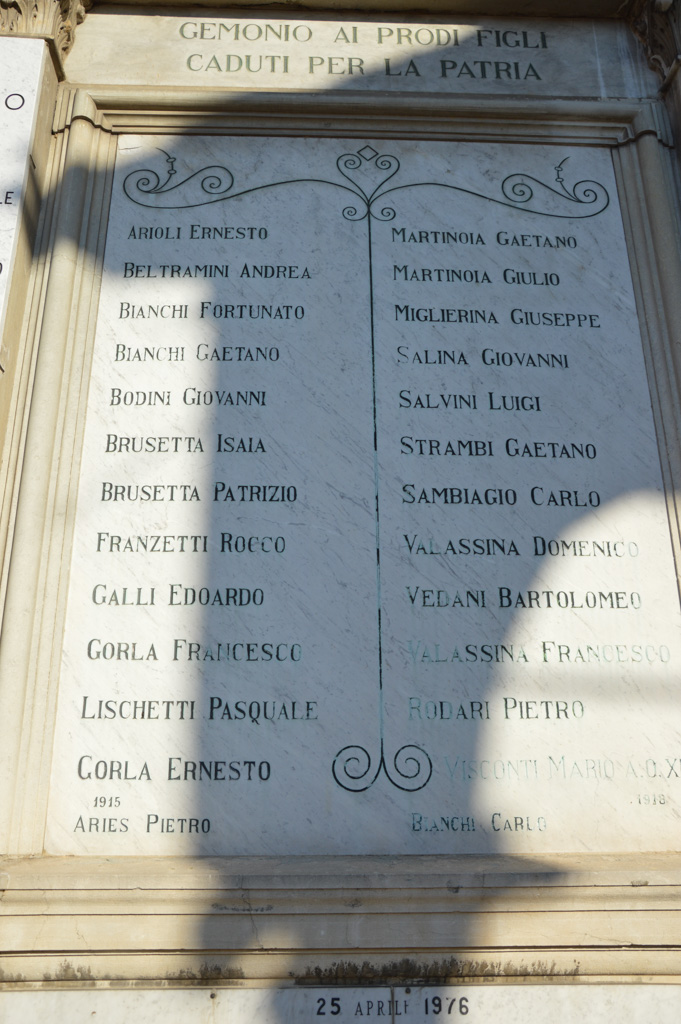 GEMONIO AI PRODI FIGLI
CADUTI PER LA PATRIA
ARIOLI ERNESTO
BELTRAMINI ANDREA
BIANCHI FORTUNATO
BIANCHI GAETANO
BODINI GIOVANNI
BRUSETTA ISAIA
BRUSETTA PATRIZIO
FRANZETTI ROCCO
GALLI EDOARDO
GORLA FRANCESCO
LISCHETTI PASQUALE
GORLA ERNESTO
1915
ARIES PIETRO
MARTINOIA GAETANO
MARTINOIA GIULIO
MIGLIERINA GIUSEPPE
SALINA GIOVANNI
SALVINI LUIGI
STRAMBI GAETANO
SAMBIAGIO CARLO
VALASSINA DOMENICO
VEDANI BARTOLOMEO
VALASSINA FRANCESCO
RODARI PIETRO
VISCONTI MARIO A.O.
1918
BIANCHI CARLO
25 APRILE 1976